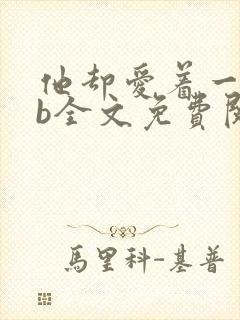 他却愛着一
b全文免費閱
馬里科-基普